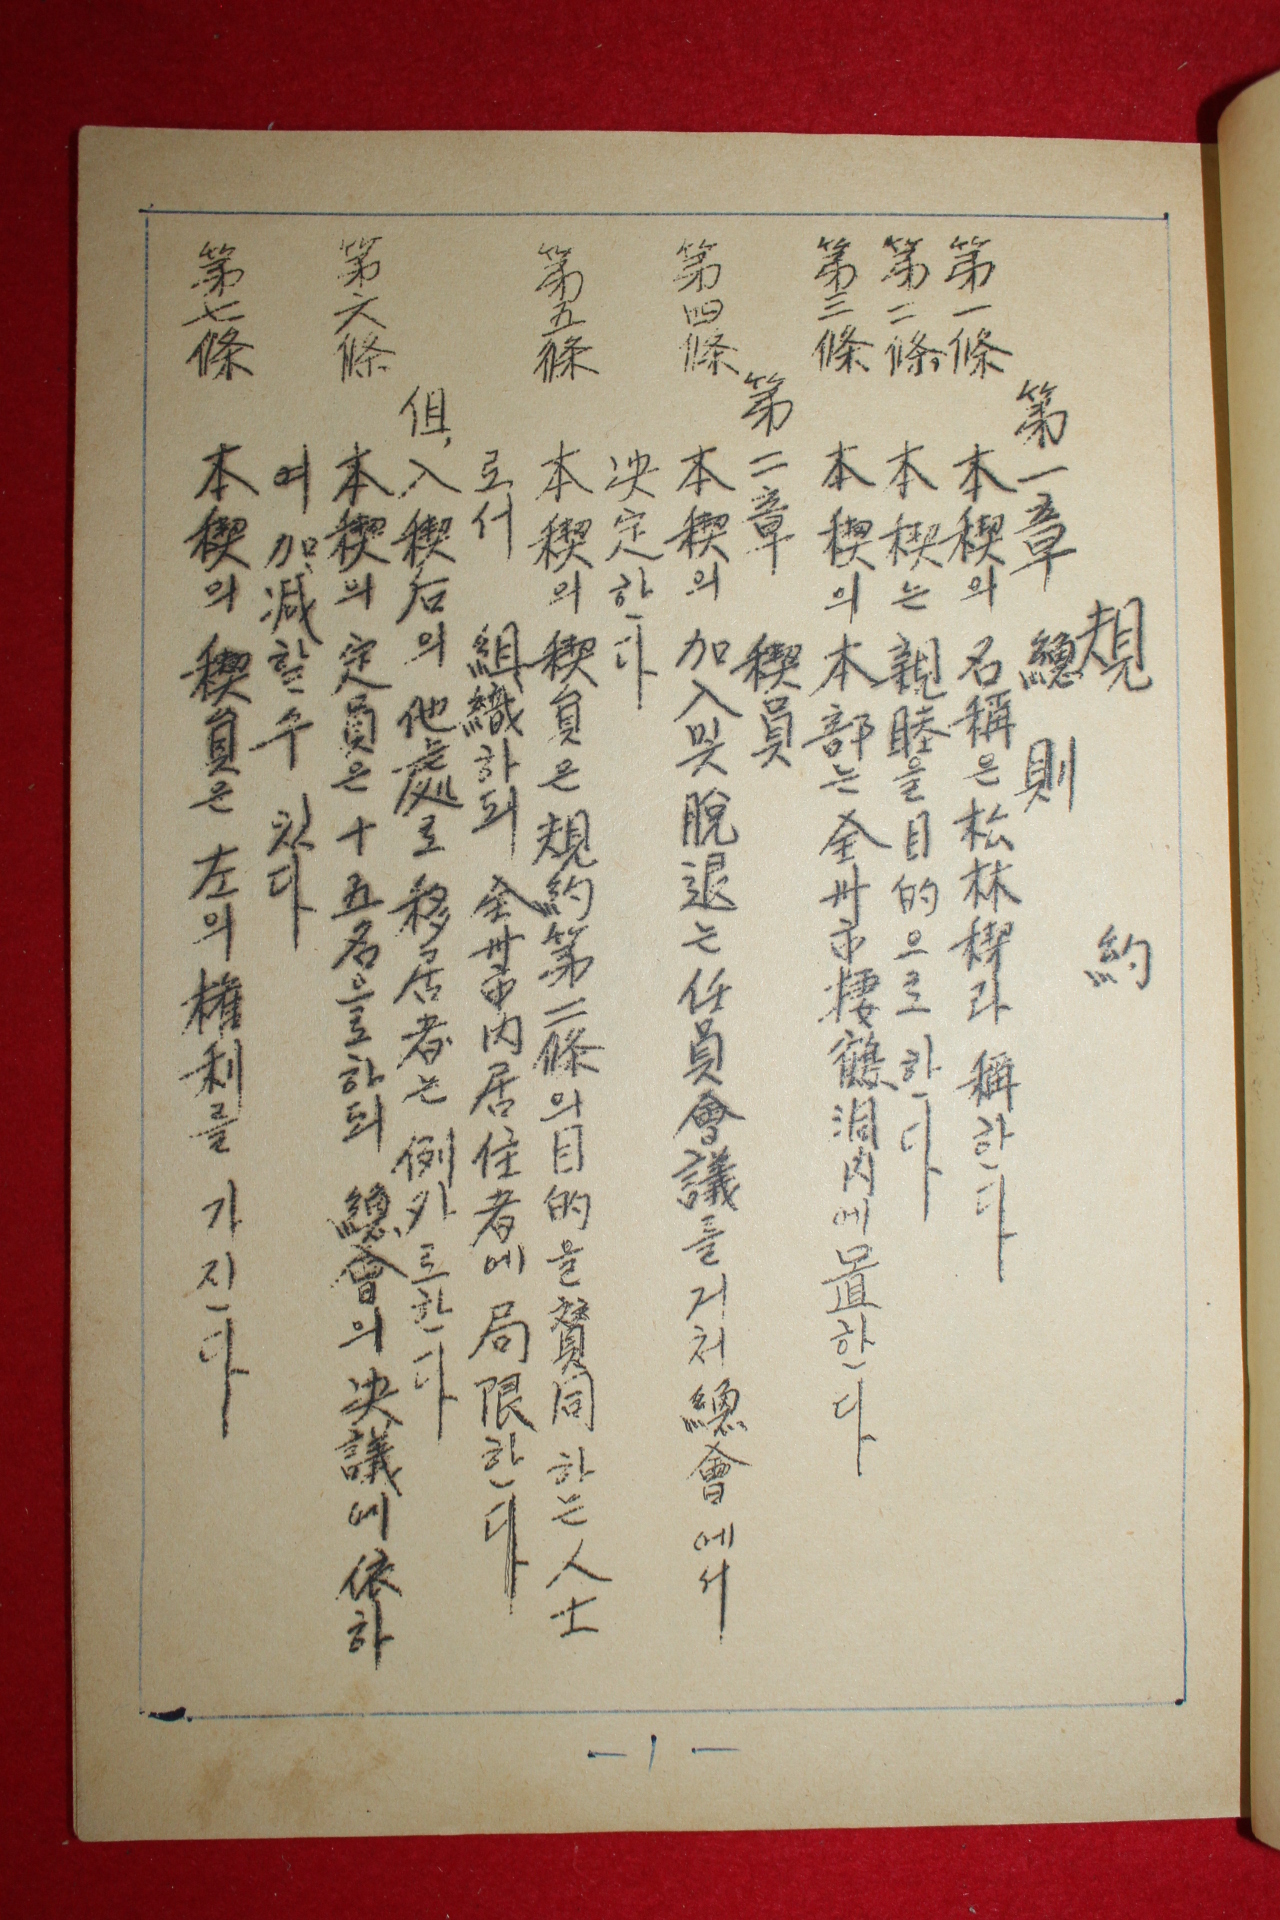 規約
第一章 總則
第一條 本稧의 名稱은 松林稧라 稱한다
第二條 本稧는 親睦을 目的으로 한다
第三條 本稧의 本部는 全州市 棲鶴洞內에 置한다
第二章 稧員
第四條 本稧의 加入 및 脫退는 任員會議를 거처 總會에서
决定한다
第五條 本稧의 稧員은 規約第二條의 目的을 賛同하는 人士
로서 組織하되 全州市內居住者에 局限한다
但, 入稧后의 他處로 移居者는 例外로한다
第六條 本稧의 定員은 十五名을로하되 總會의 决議에 依하
여 加, 减할 수 있다
第七條 本稧의 稧員은 左의 權利를 가진다
- 1 -